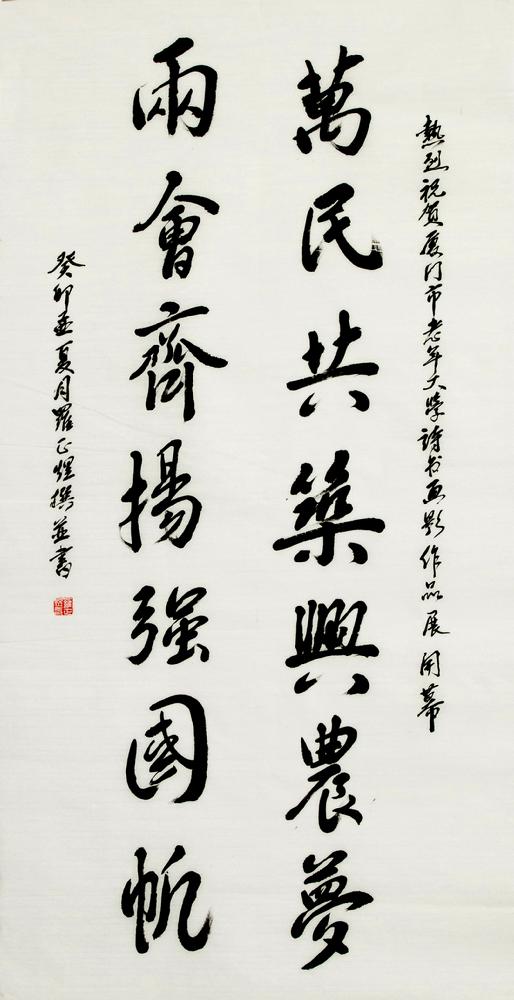 熱烈祝贺厦门市老年大學詩书画影作品展開幕
萬民共築興農夢
兩會齊揚强國帆
癸卯孟夏月羅正煌撰並書